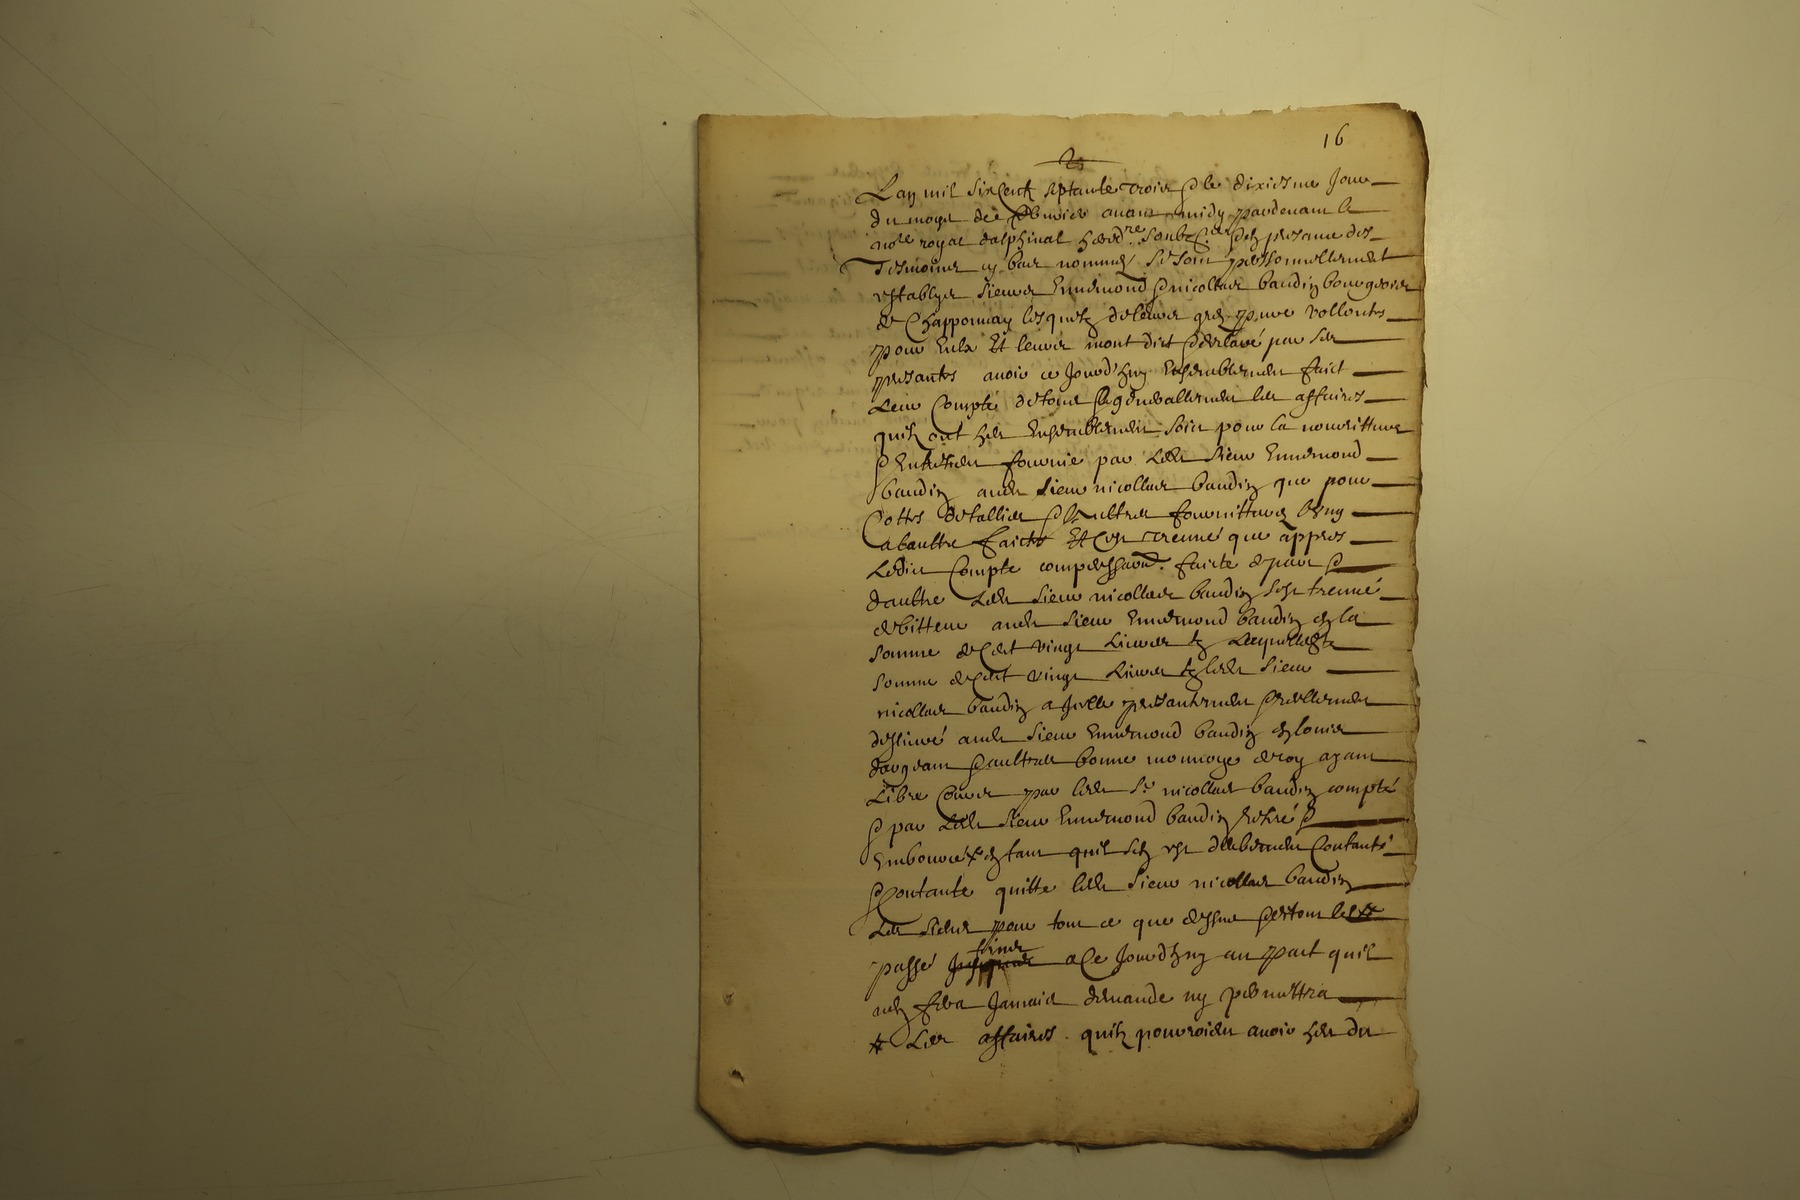 16
Lan mil six cent septante trois & le dixiesme jour
du moys de febvrier avant midy pardevant le
no.re royal dalphinal hered.re soubz.né & en presance des
tesmoins cy bas nommés se sont personnellement
establys sieurs Ennemond & nicollas baudin bourgeois
de Chapponnay lesquelz de leurs grez pure vollonté
pour Eulx Et leurs mont dict & desclairé par ses
presantes avoir ce jourd'huy Ensemblement faict
Leur Compte de tous & generallement les affaires
quilz ont heu Ensemblement soit pour la nourritture
& Entretien fournie par Ledt sieur Ennemond
baudin audt sieur nicollas baudin que pour
Cottes de tallies & aultres fournittures lung
a laultre faictes Et Cest treuvé que appres
Ledict Compte compenssaon faicte de part &
daultre Ledt sieur nicollas baudin sest treuvé
debitteur audt sieur Ennemond baudin de la
somme de Cent vingt Livres tz Laquelle
somme de Cent vingt Livres tz ledt sieur
nicollas baudin a Icelle presantement & reellement
deslivré audt sieur Ennemond baudin en louis
dargeant & aultres bonne monnoye de roy ayant
Libre Cours par ledt Sr nicollas baudin compté
& par Ledt sieur Ennemond baudin retiré &
Emboursé en tant quil sen est bien Contanté
& Contante quitte ledt sieur nicollas baudin
Les siens pour tout ce que dessus & de tout les #
passé a Ce jourdhuy au pact quil
nen fera jamais demande ny permettra
# Les affaires quilz pourroient avoir heu du